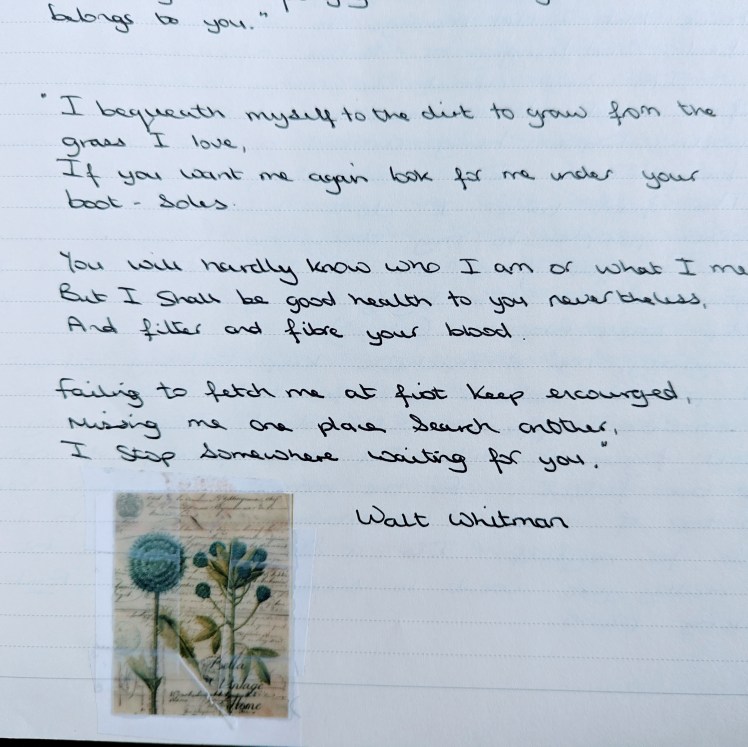 belongs to you."
"I bequeath myself to the dirt to grow from the
grass I love,
If you want me again look for me under your
boot-soles.
You will hardly know who I am or what I me
But I shall be good health to you nevertheless,
And filter and fibre your blood.
Failing to fetch me at first keep encourged,
Missing me one place search another,
I stop somewhere waiting for you."
Walt Whitman
Bella
Vintage
Home